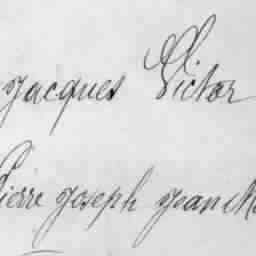 Jacques Victor
Pierre Joseph Jean M